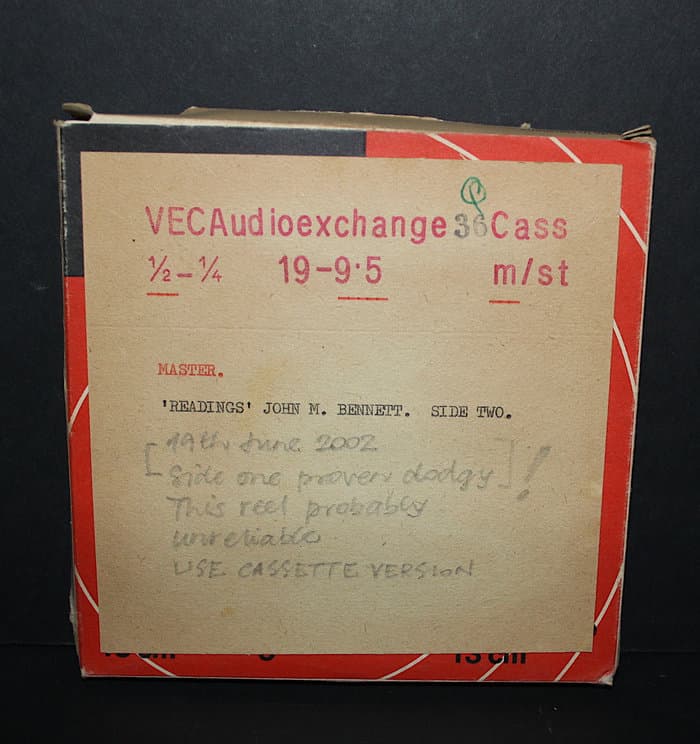 VECAudioexchange 36 Cass
½-¼ 19-9·5 m/st
MASTER.
'READINGS' JOHN M. BENNETT. SIDE TWO.
19th June 2002
[Side one proven dodgy]!
This reel probably
unreliable
USE CASSETTE VERSION
13 cm